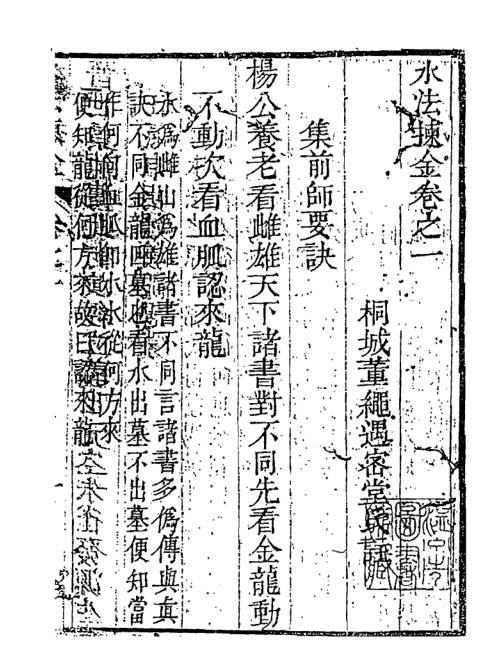 水法揀金卷之一
桐城董繩遇密堂氏
集前師要訣
楊公養老看雌雄天下諸書對不同先看金龍動
不動次看血脈認來龍
水為雌山為雄諸書不同言諸書多偽傳與真
訣不同金龍四墓也看水出墓不出墓便知當
作何向血脈即水水從何方來
便知龍從何方來故曰認來龍